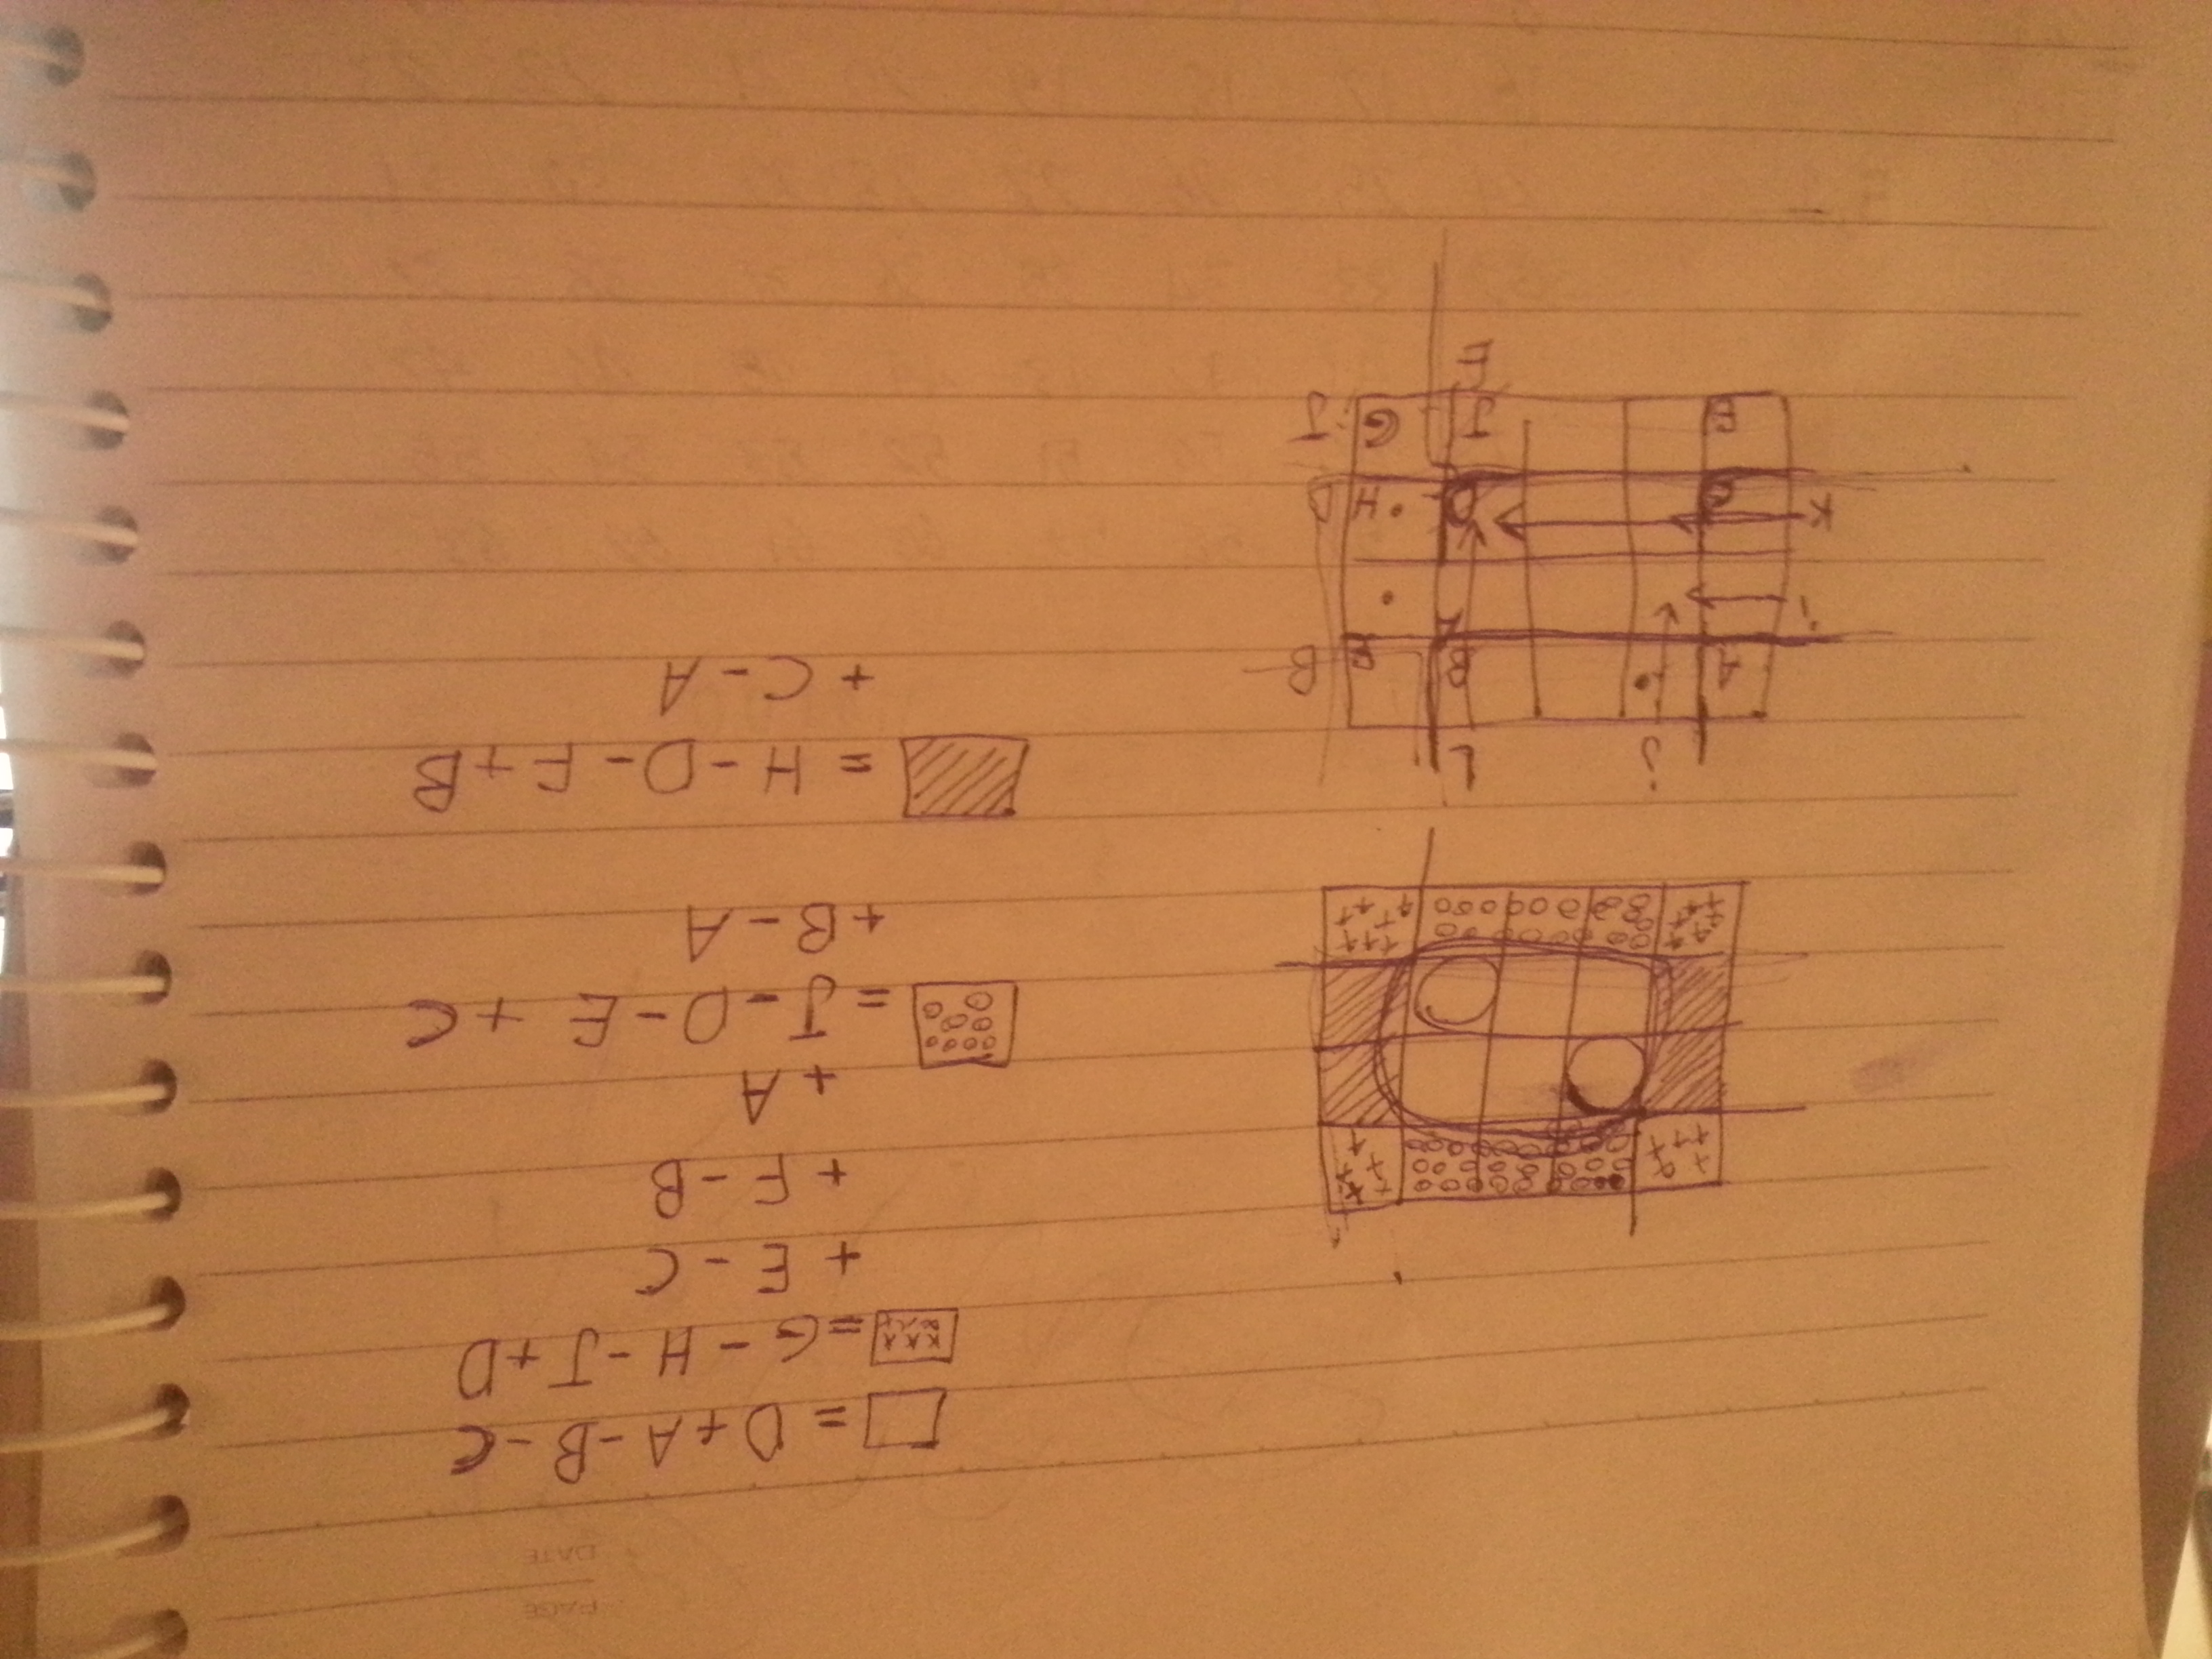 PAGE
DATE
= D + A - B - C
= G - H - J + D
+ E - C
+ F - B
+ A
= J - D - E + C
+ B - A
= H - D - F + B
+ C - A
j L
A B B
A
i
K D H D
E J G J
F